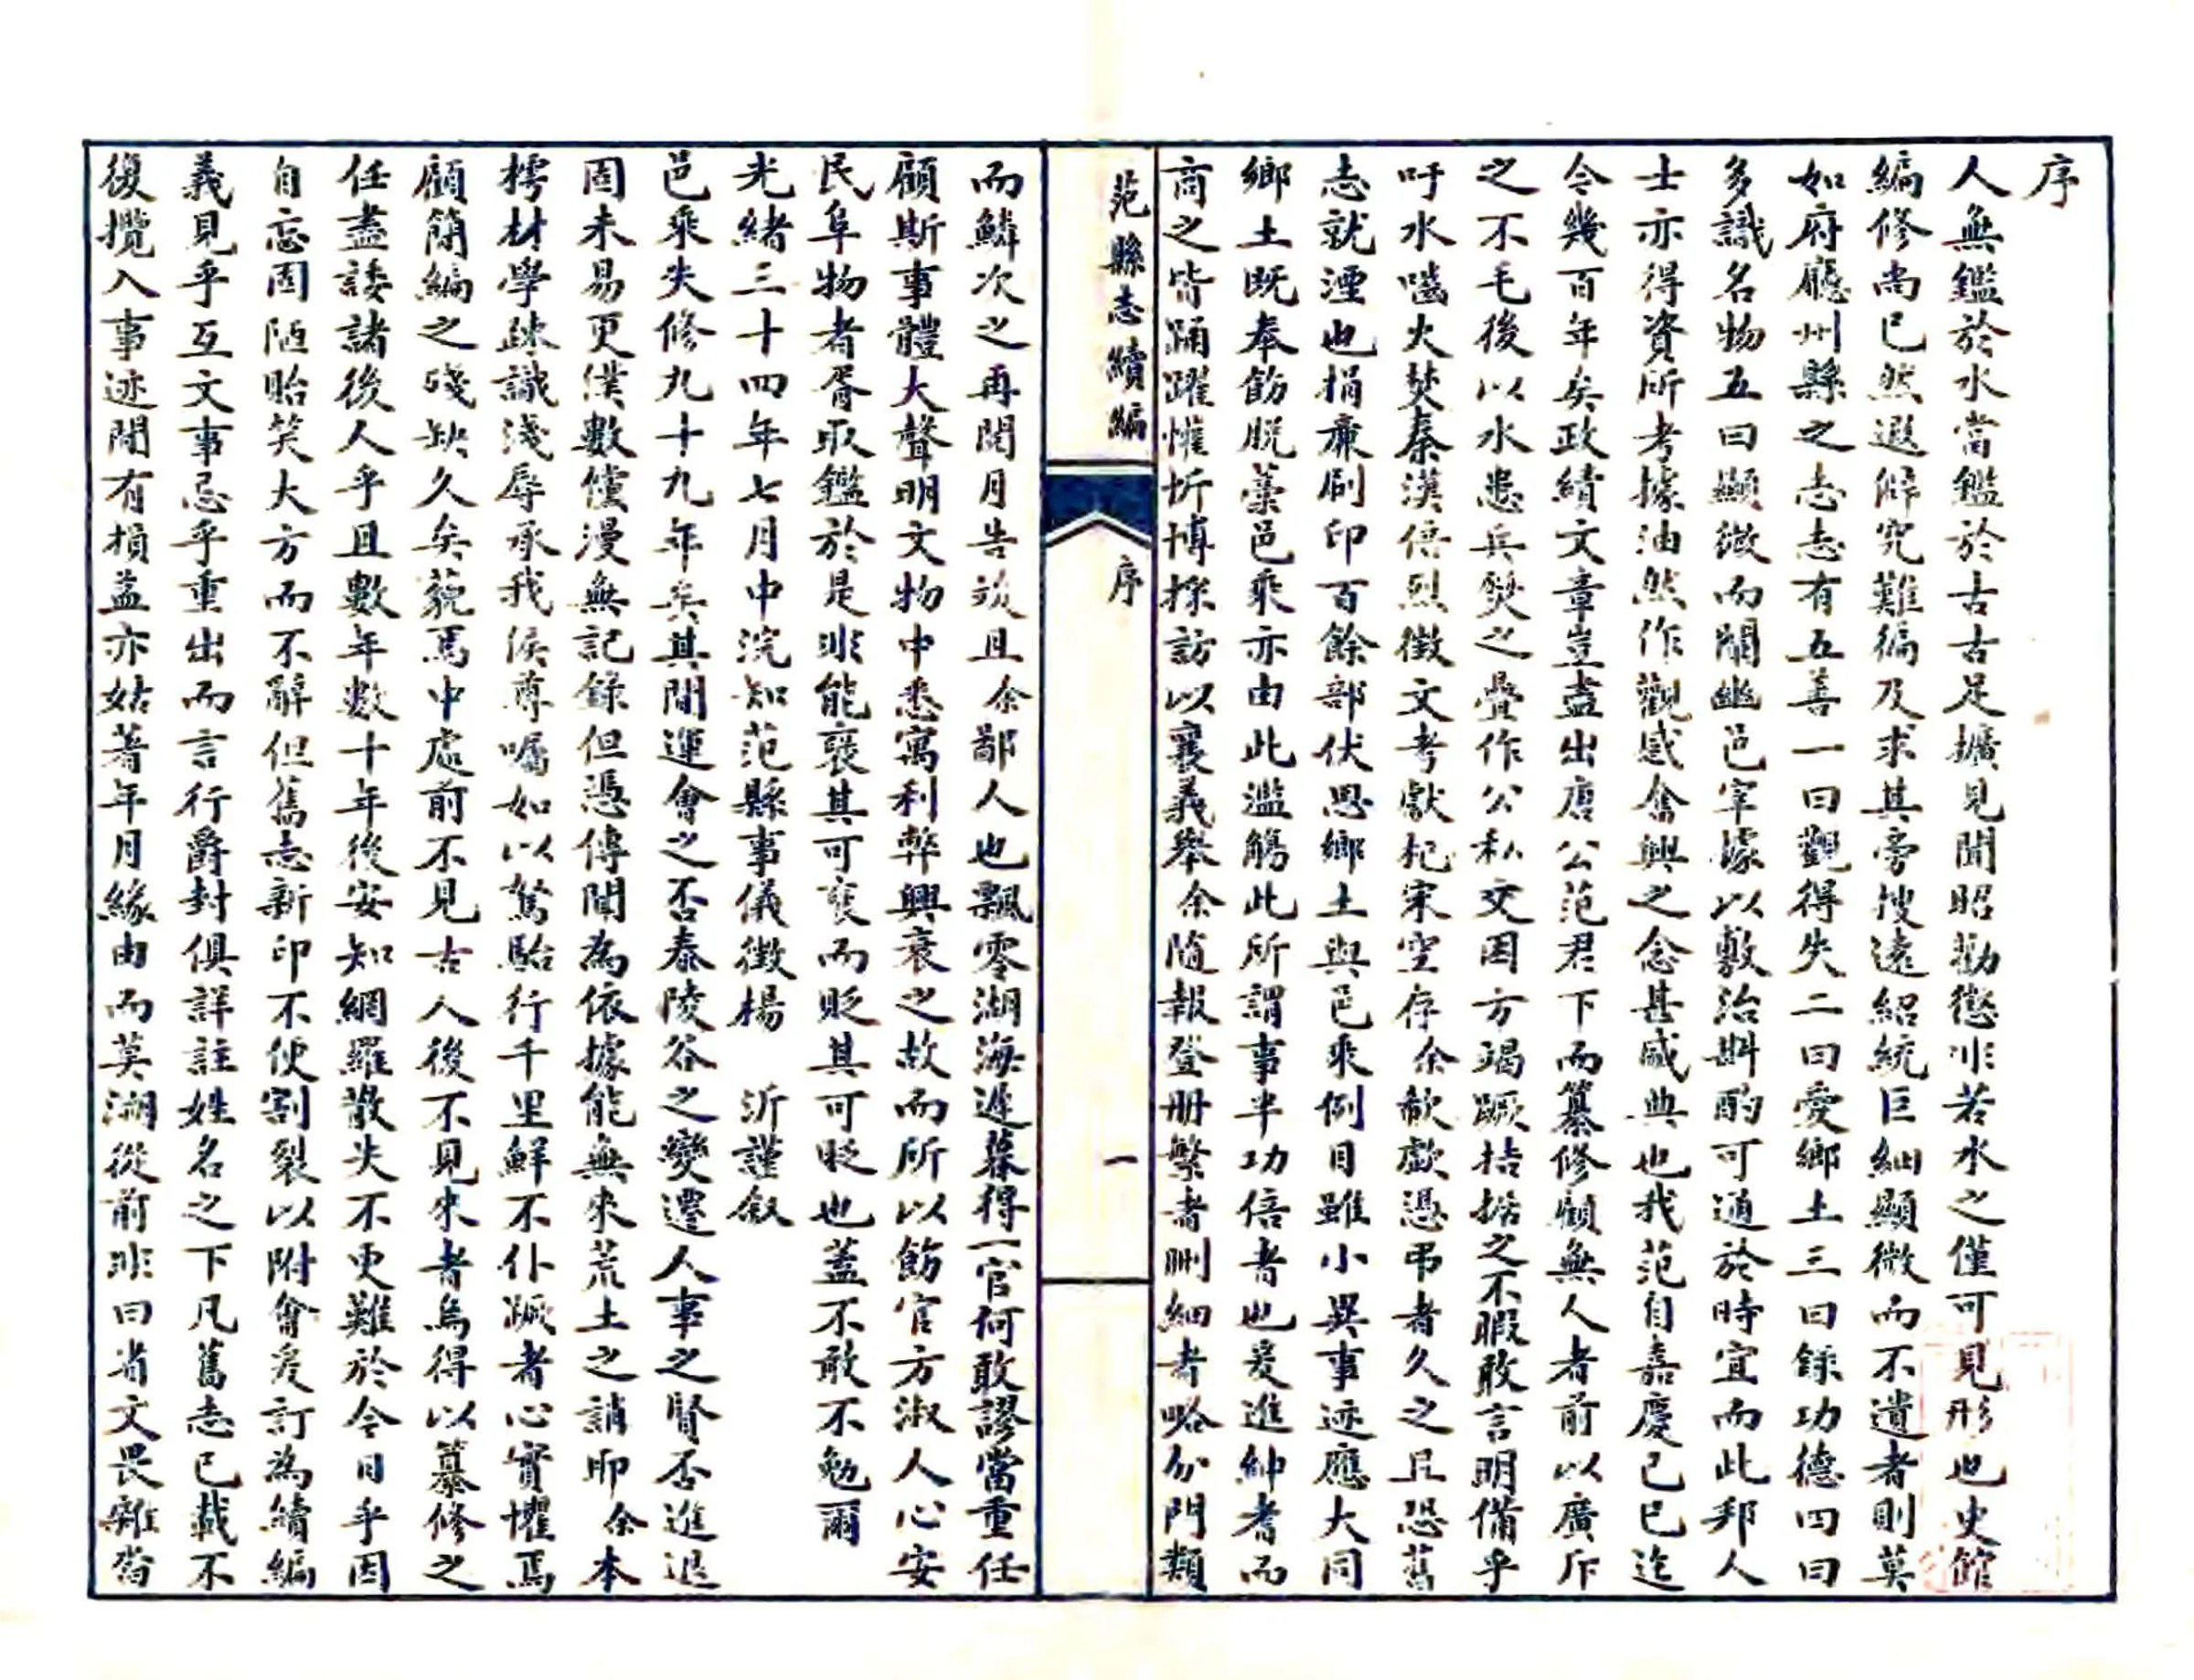 序
人無鑑於水當鑑於古古足擴見聞昭勸懲非若水之僅可見形也史館
編修尚已然遐僻究難徧及求其旁搜遠紹統巨細顯微而不遺者則莫
如府廳州縣之志志有五善一曰觀得失二曰愛鄉土三曰錄功德四曰
多識名物五曰顯微而闡幽邑宰據以敷治斟酌可通於時宜而此邦人
士亦得資所考據油然作觀感奮興之念甚盛典也我范自嘉慶己巳迄
今幾百年矣政績文章豈盡出唐公范君下而纂修顧無人者前以廣斥
之不毛後以水患兵燹之疊作公私交困方竭蹶拮据之不暇敢言明備乎
吁水囓火焚秦漢倍烈徵文考獻杞宋空存余欷歔憑弔者久之且恐舊
志就湮也捐亷刷印百餘部伏思鄉土與邑乘例目雖小異事迹應大同
鄉土既奉飭脱藁邑乘亦由此濫觴此所謂事半功倍者也爰進紳耆而
商之皆踴躍懽忻博採訪以襄義舉余隨報登册繁者刪細者略分門類
范縣志續編
序
一
而鱗次之再閱月告竣且余鄙人也飄零湖海遲暮得一官何敢謬當重任
顧斯事體大聲明文物中悉寓利弊興衰之故而所以飭官方淑人心安
民阜物者胥取鑑於是非能褒其可襃而貶其可貶也蓋不敢不勉爾
光緒三十四年七月中浣知范縣事儀徵楊 沂謹叙
邑乘失修九十九年矣其間運會之否泰陵谷之變遷人事之賢否進退
固未易更僕數儻漫無記錄但憑傳聞為依據能無來荒土之誚耶余本
樗材學疎識淺辱承我侯尊囑如以駑駘行千里鮮不仆蹶者心實懼焉
顧簡編之殘缺久矣藐焉中處前不見古人後不見來者烏得以纂修之
任盡諉諸後人乎且數年數十年後安知網羅散失不更難於今日乎因
自忘固陋貽笑大方而不辭但舊志新印不便割裂以附會爰訂為續編
義見乎互文事忌乎重出而言行爵封俱詳註姓名之下凡舊志已載不
復攬入事迹間有損益亦姑著年月緣由而莫溯從前非曰省文畏雜沓